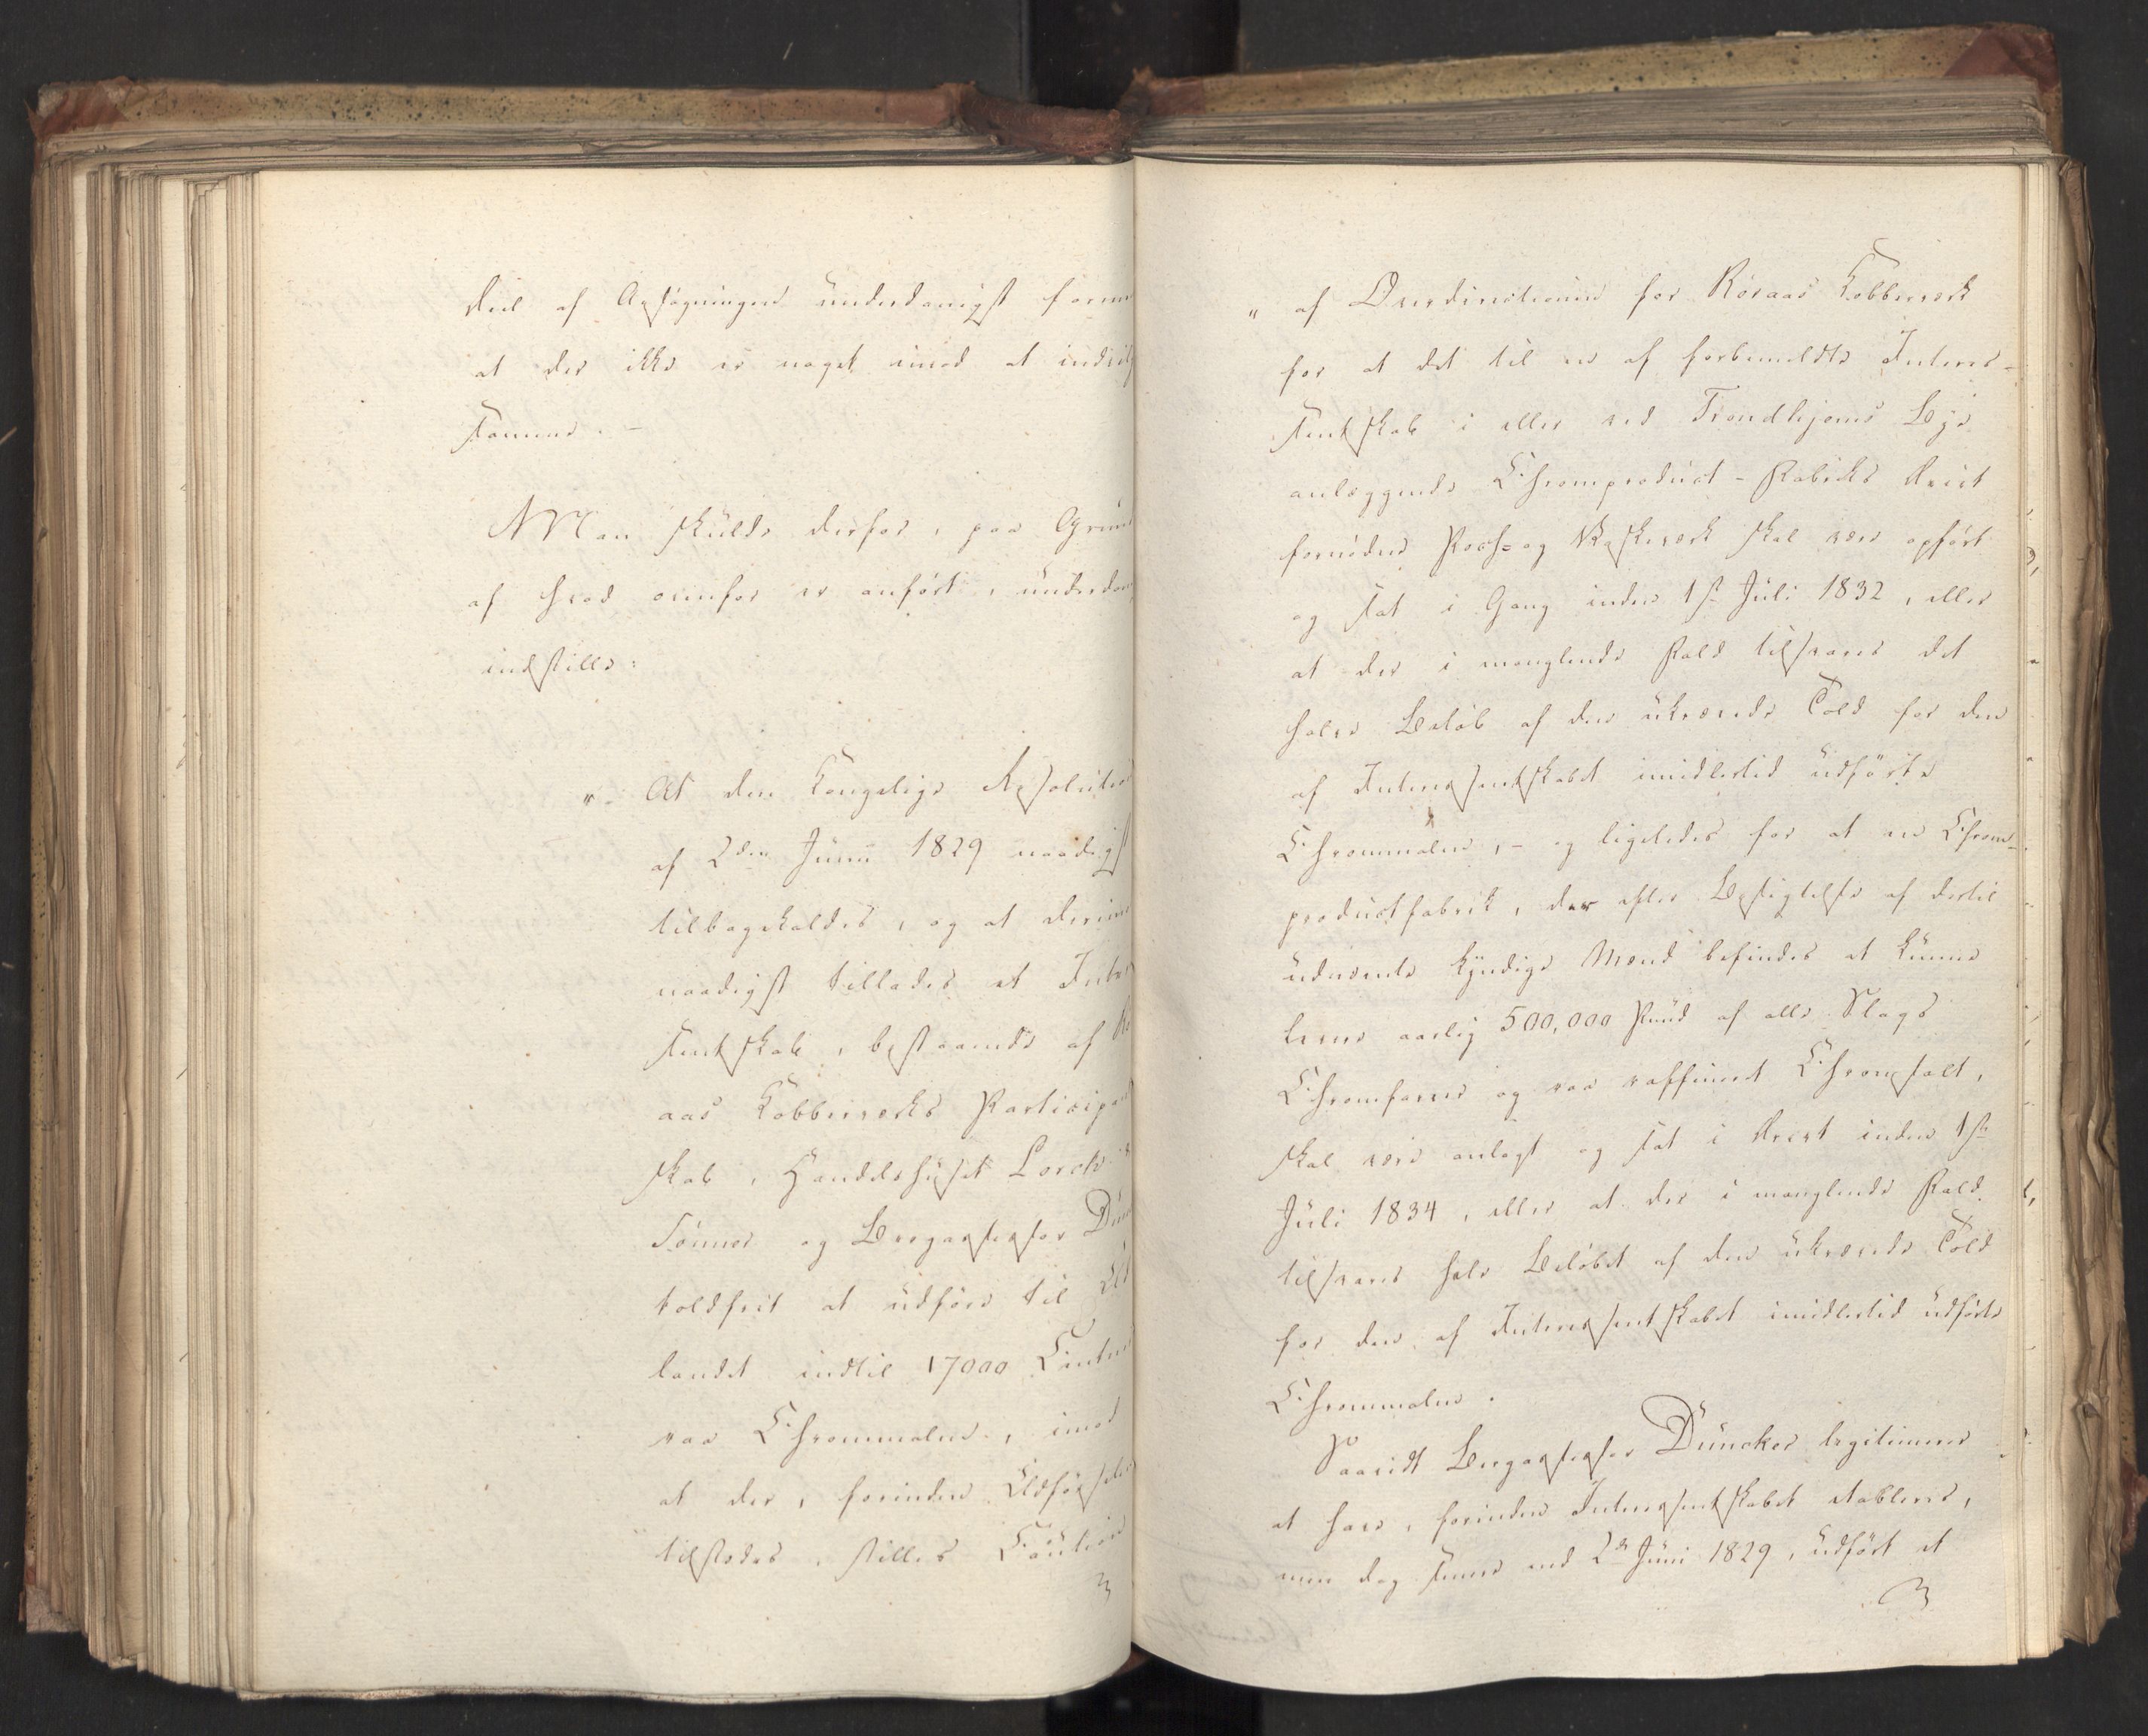 Deel af Ansøgningen underdanigst form
at der ikke er noget imod at indvilg
samme. -
Man skulde derfor, paa Grund
af hvad ovenfor er anført, underdan
indstille:
"At den Kongelige Resolution
af 2den Junii 1829 naadigst
tilbagekaldes, og at derimod
naadigst tillades et Intres
sentskab, bestaaende af Rö
aas Kobberværks Participant
skab, Handelshuset Lorck
Sönner og Bergassessor Dünc
toldfrit at udføre til Ud
landet indtil 17000 Centner
raa Chrommalm, imod
at der, forinden Udførselen
tilstedes, stilles Caution
" af Overdirectionen for Röraas Kobberværk
for at det til en af forbemeldte Interes-
sentskab i eller ved Trondhjems Bye
anlæggende Chromproduct-Fabriks Drivt
fornödne Poch- og Vaskeværk skal være opført
og sat i Gang inden 1ste Juli 1832, eller
at der i manglende Fald tilsvares det
halve Beløb af den ukrævede Told for den
af Interessentskabet imidlertid udførte
Chrommalm, - og ligeledes for at en Chrom-
productfabrik, der efter Besigtelse af dertil
udnævnte kyndige Mænd befindes at kunne
levere aarlig 500,000 Pund af alle Slags
Chromfarver og raa raffineret Chromsalt,
skal være anlagt og sat i Drivt inden 1ste
Juli 1834, eller at der i manglende Fald
tilsvares hele Beløbet af den ukrævede Told
for den af Interessentskabet imidlertid udførte
Chrommalm.
Saavidt Bergassessor Düncker legitimerer
at have, forinden Interessentskabet etableres,
men dog senere end 2den Juni 1829, udført et